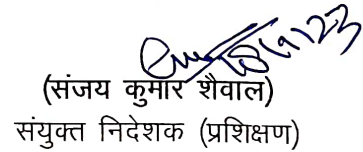 18/9/23
(संजय कुमार शैवाल)
संयुक्त निदेशक (प्रशिक्षण)